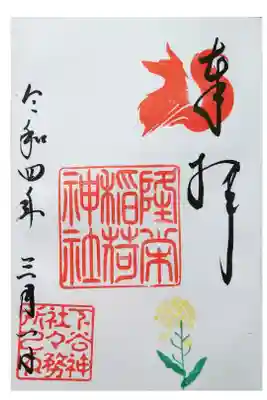 奉拝
隆栄
稲荷
神社
令和四年 三月
下谷神
社々務
所之印